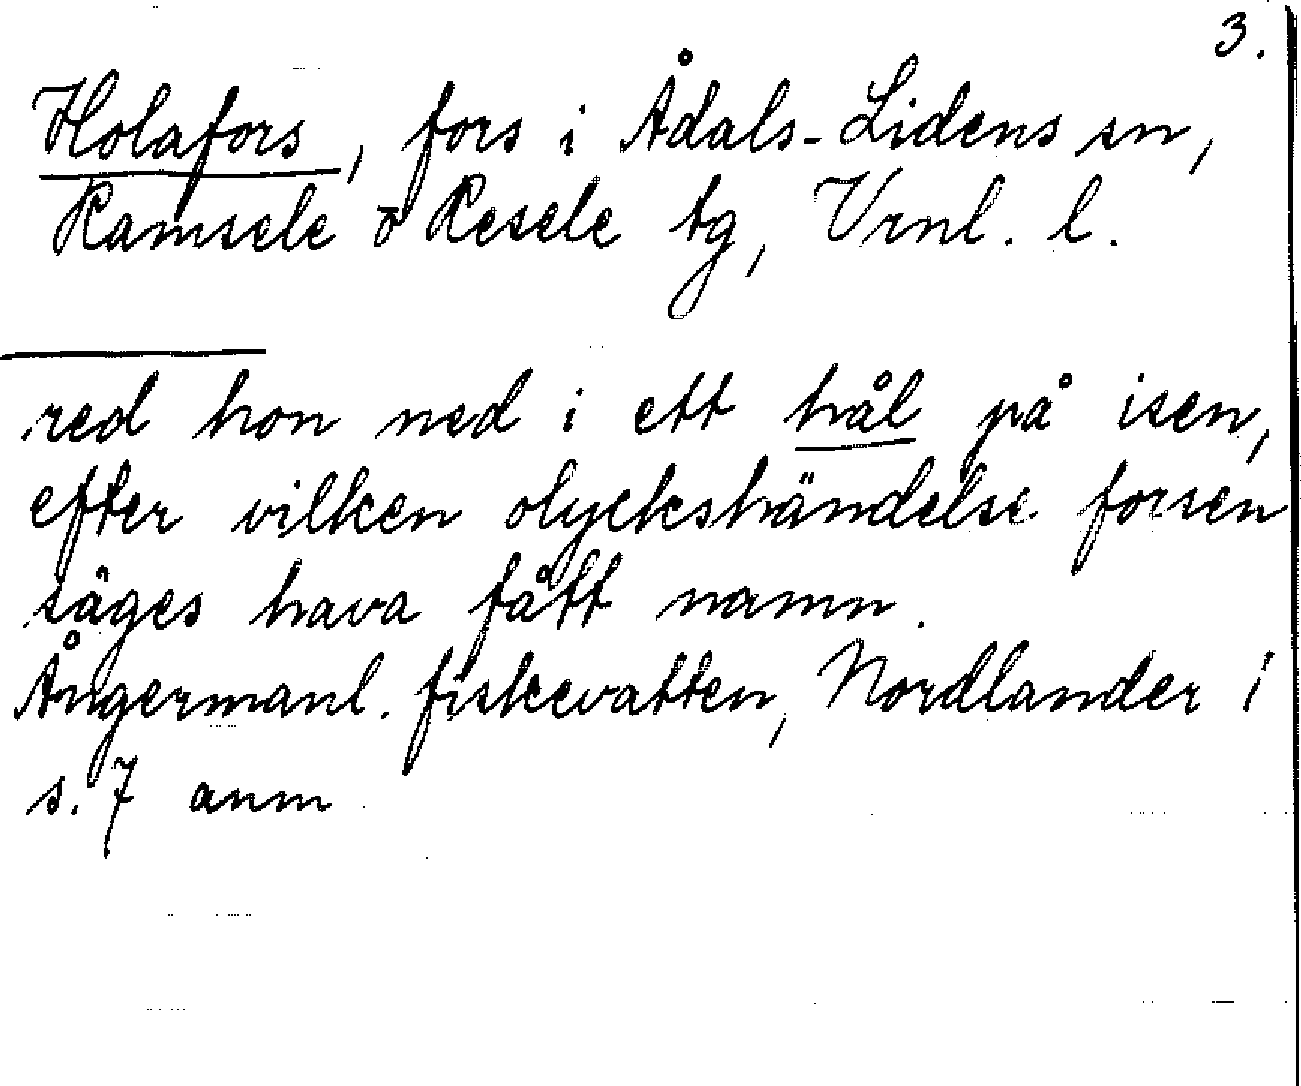 3.
Holafors, fors i Ådals-Lidens sn,
Ramsele o Resele tg, Vrnl. l.
red hon ned i ett hål på isen,
efter vilken olyckshändelse forsen
säges hava fått namn.
Ångermanl. fiskevatten, Nordlander i
s. 7 anm